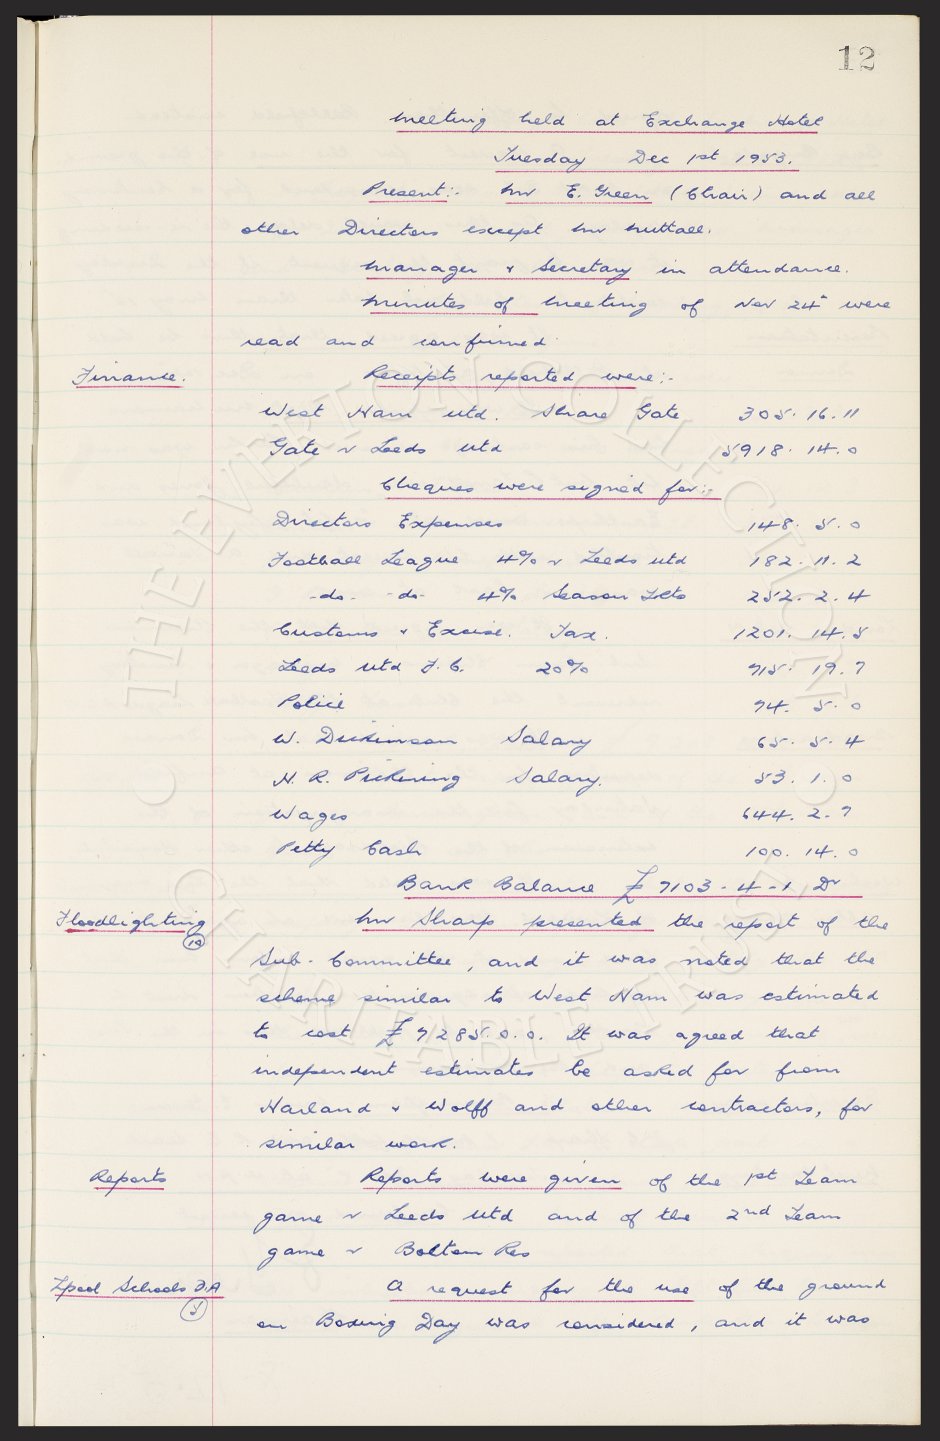 12
Meeting held at Exchange Hotel
Tuesday Dec 1st 1953.
Present:- Mr E. Green (Chair) and all
other Directors except Mr Nuttall.
Manager & Secretary in attendance.
Minutes of Meeting of Nov 24th were
read and confirmed.
Finance. Receipts reported were:-
West Ham Utd. Share Gate 305. 16. 11
Gate v Leeds Utd 5918. 14. 0
Cheques were signed for:-
Directors Expenses 148. 5. 0
Football League 4% v Leeds Utd 182. 11. 2
-do- -do- 4% Season Tkts 252. 2. 4
Customs & Excise. Tax. 1201. 14. 5
Leeds Utd F.C. 20% 915. 19. 7
Police 74. 5. 0
W. Dickinson Salary 65. 5. 4
H. R. Pickering Salary. 53. 1. 0
Wages 644. 2. 7
Petty Cash 100. 14. 0
Bank Balance £7103-4-1 Dr
Floodlighting Mr Sharp presented the report of the
10
Sub-Committee, and it was noted that the
scheme similar to West Ham was estimated
to cost £7285.0.0. It was agreed that
independent estimates be asked for from
Harland & Wolff and other contractors, for
similar work.
Reports Reports were given of the 1st Team
game v Leeds Utd and of the 2nd Team
game v Bolton Res
L'pool Schools F.A A request for the use of the ground
5
on Boxing Day was considered, and it was
THE EVERTON COLLECTION
CHARITABLE TRUST